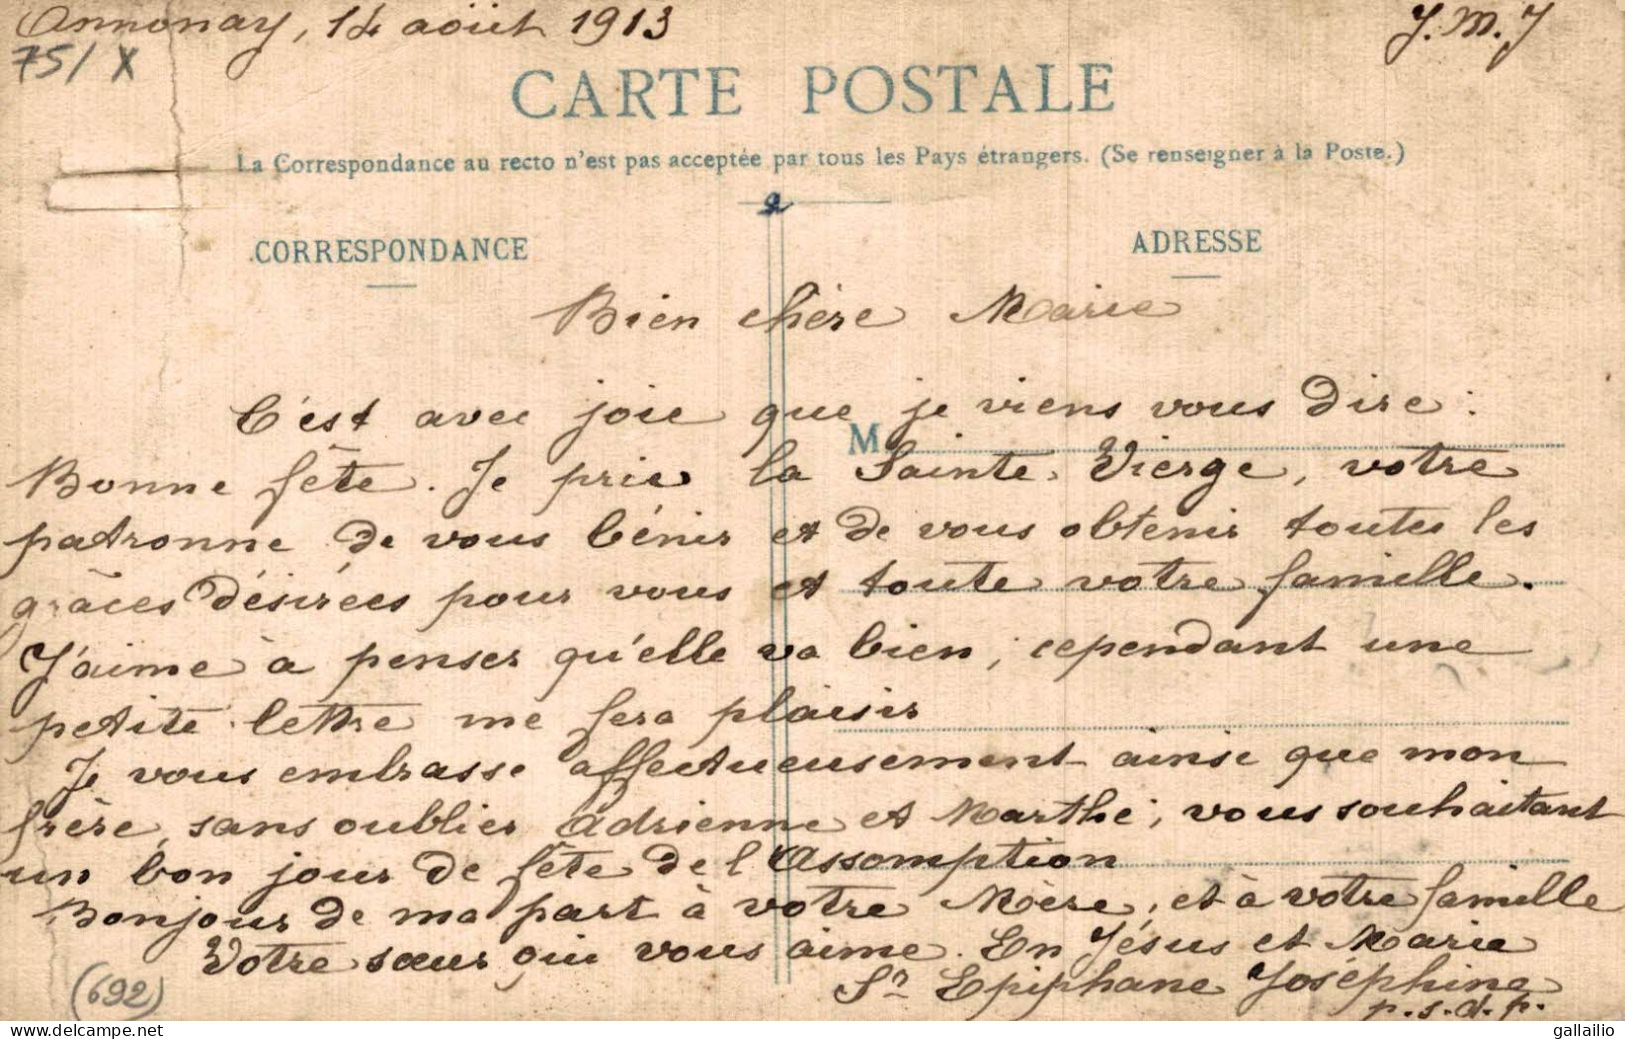 Annonay, 14 août 1913
J.M.J
75/ X
CARTE POSTALE
La Correspondance au recto n'est pas acceptée par tous les Pays étrangers. (Se renseigner à la Poste.)
CORRESPONDANCE
ADRESSE
Bien chère Marie
C'est avec joie que je viens vous dire :
M
Bonne fête. Je prie la Sainte Vierge, votre
patronne de vous bénir et de vous obtenir toutes les
grâces désirées pour vous et toute votre famille.
J'aime à penser qu'elle va bien, cependant une
petite lettre me fera plaisir
Je vous embrasse affectueusement ainsi que mon
frère, sans oublier Adrienne et Marthe, vous souhaitant
un bon jour de fête de l'Assomption
Bonjour de ma part à votre Mère, et à votre famille
Votre sœur qui vous aime. En Jésus et Marie
Sr Epiphane Joséphine
p.s.d.p.
(692)
gallailio